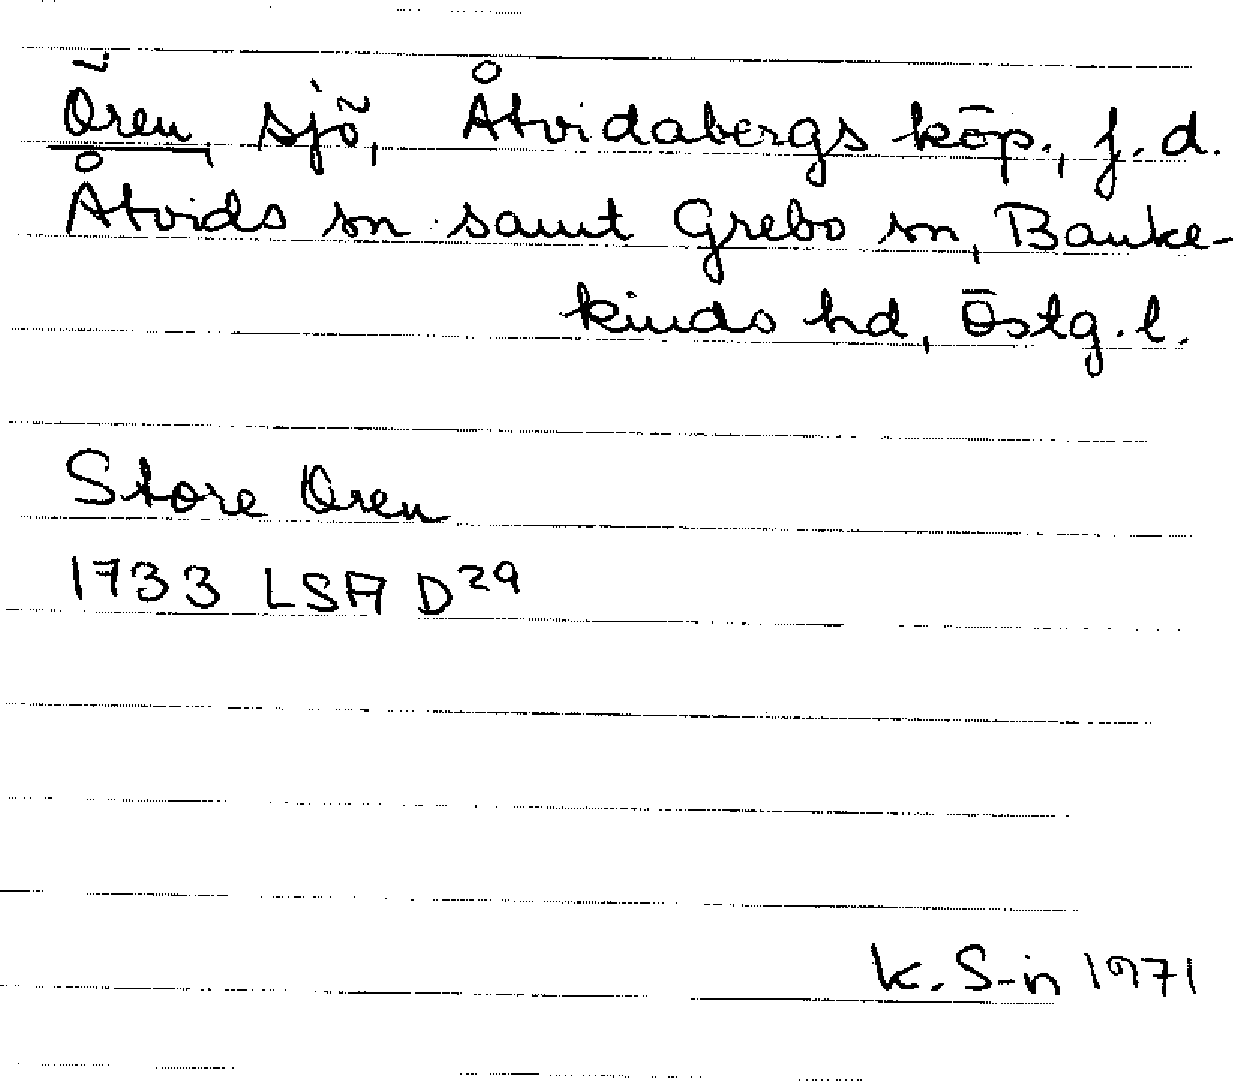 Ören, sjö, Åtvidabergs köp., f.d.
Åtvids sn samt Grebo sn, Banke-
kinds hd, Östg.l.
Store Oren
1733 LSA D29
K. S-n 1971